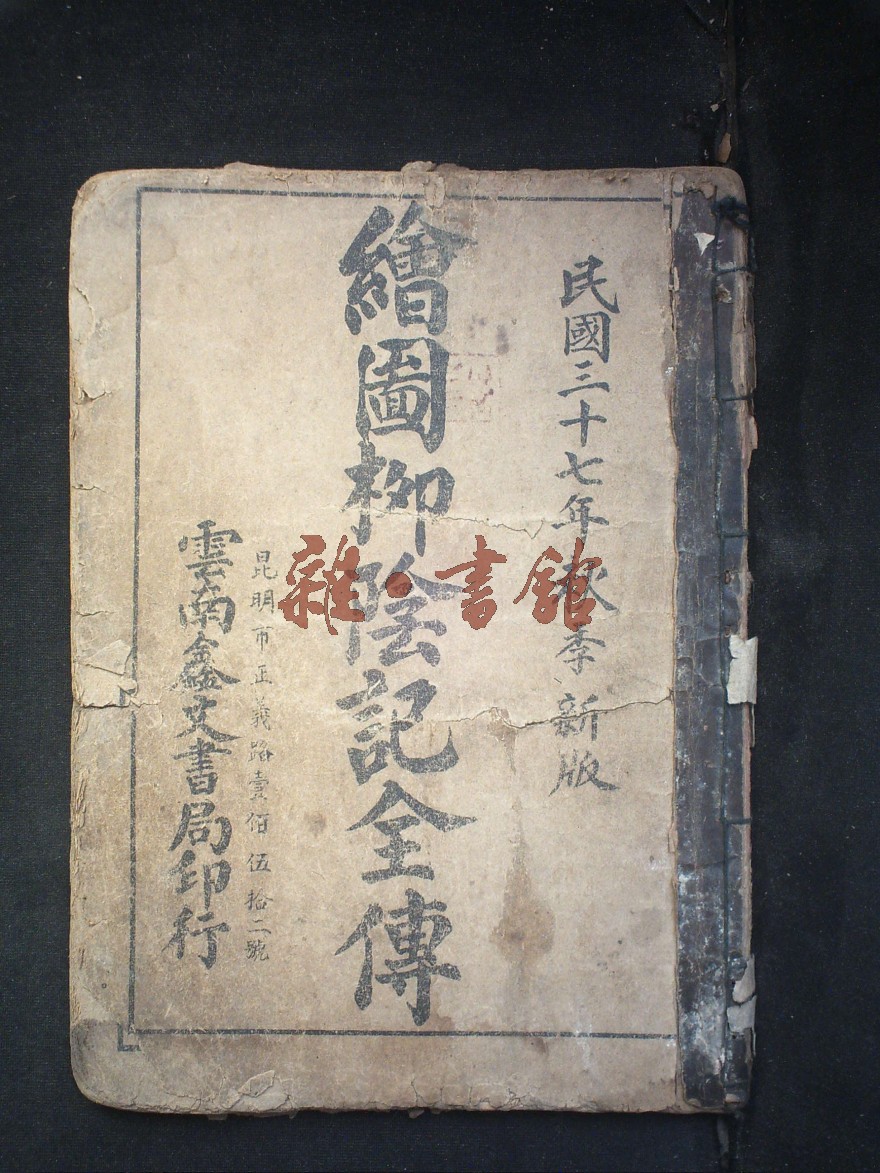 民國三十七年秋季新版
繪圖柳陰記全傳
昆明市正義路壹佰伍拾二號
雲南鑫文書局印行
雜·書館